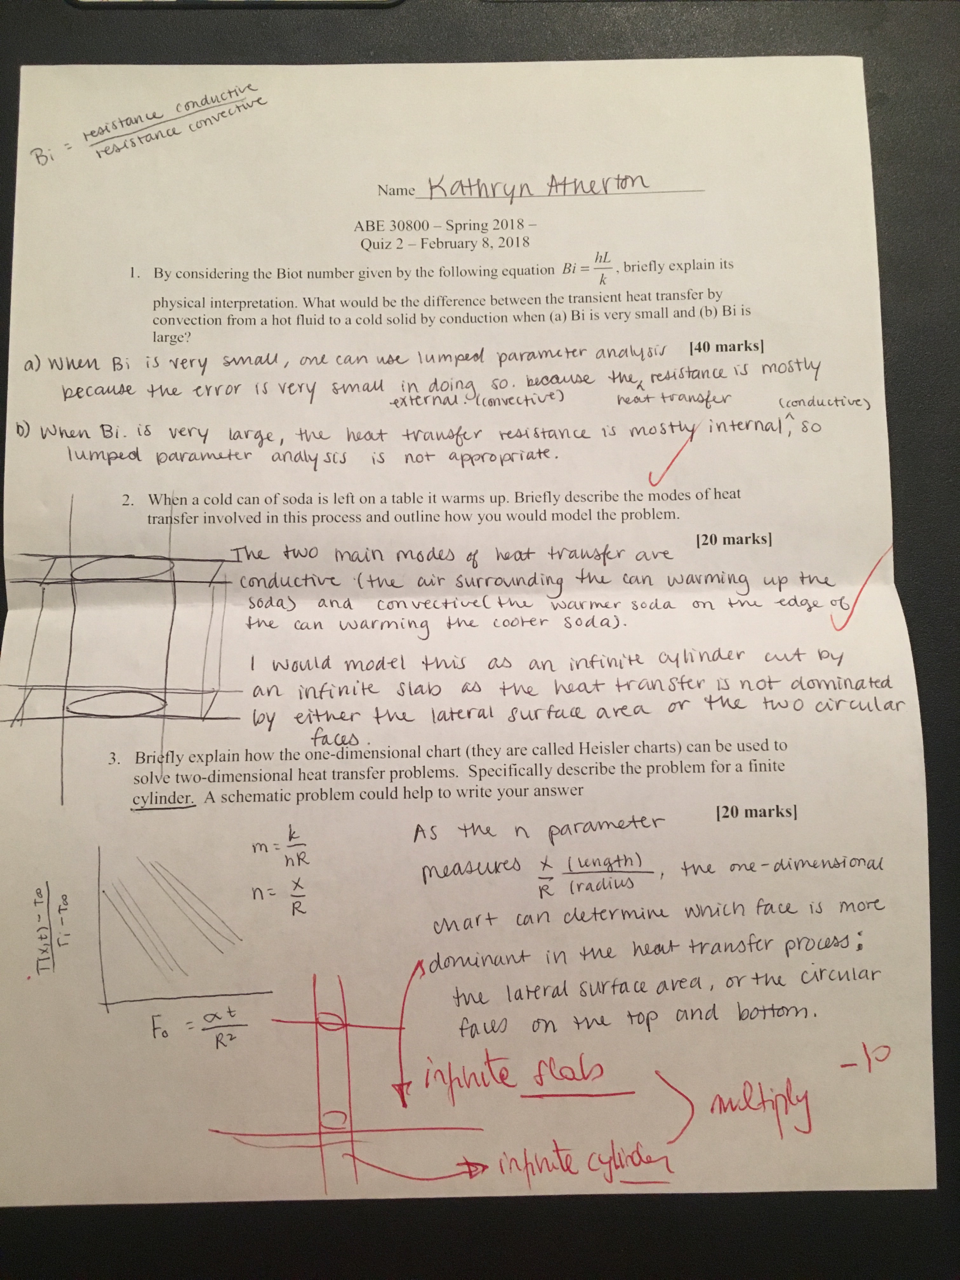 Bi = resistance conductive / resistance convective
Name Kathryn Atherton
ABE 30800 – Spring 2018 –
Quiz 2 – February 8, 2018
1. By considering the Biot number given by the following equation Bi = hL/k, briefly explain its
physical interpretation. What would be the difference between the transient heat transfer by
convection from a hot fluid to a cold solid by conduction when (a) Bi is very small and (b) Bi is
large?
[40 marks]
a) When Bi is very small, one can use lumped parameter analysis
because the error is very small in doing so. because the heat transfer resistance is mostly
external. (convective)
b) When Bi. is very large, the heat transfer resistance is mostly internal (conductive), so
lumped parameter analysis is not appropriate.
2. When a cold can of soda is left on a table it warms up. Briefly describe the modes of heat
transfer involved in this process and outline how you would model the problem.
[20 marks]
The two main modes of heat transfer are
conductive (the air surrounding the can warming up the
soda) and convective (the warmer soda on the edge of
the can warming the cooler soda).
I would model this as an infinite cylinder cut by
an infinite slab as the heat transfer is not dominated
by either the lateral surface area or the two circular
faces.
3. Briefly explain how the one-dimensional chart (they are called Heisler charts) can be used to
solve two-dimensional heat transfer problems. Specifically describe the problem for a finite
cylinder. A schematic problem could help to write your answer
[20 marks]
T(x,t) - T∞ / Ti - T∞
Fo = αt / R²
m = k / hR
n = x / R
As the n parameter
measures x/R (length)/(radius, the one-dimensional
chart can determine which face is more
dominant in the heat transfer process:
the lateral surface area, or the circular
faces on the top and bottom.
infinite slab
infinite cylinder
multiply
-10